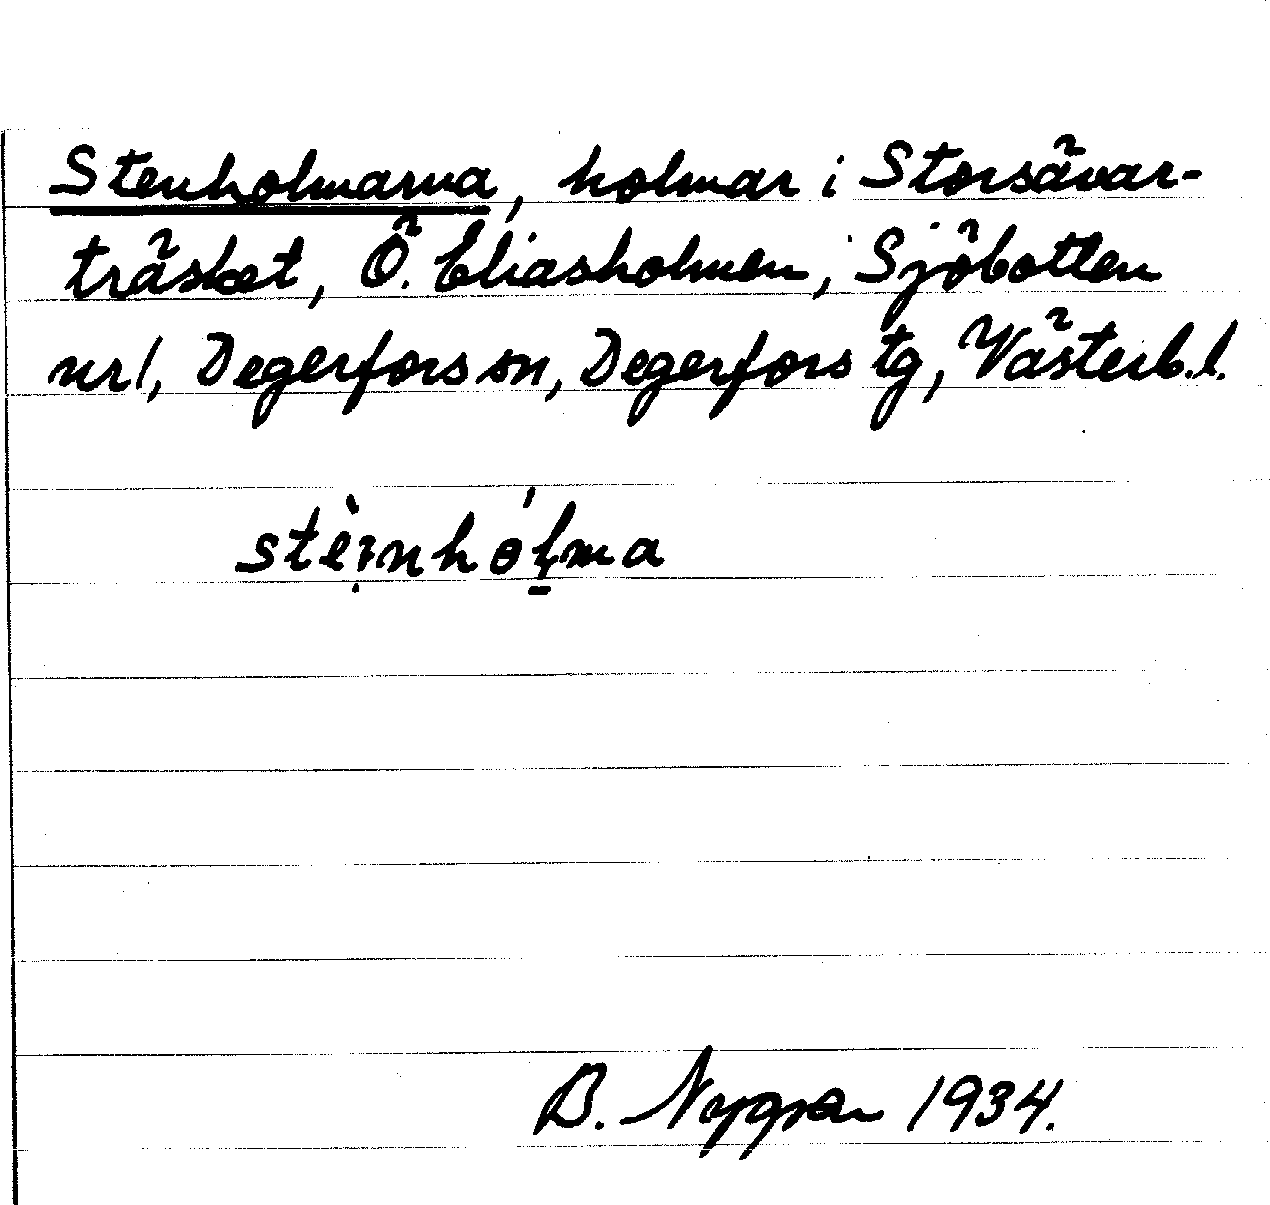 Stenholmarna, holmar i Storsävar-
träsket, Ö. Eliasholmen, Sjöbotten
nr 1, Degerfors sn, Degerfors tg, Västerb. l.
B. Nygren 1934.